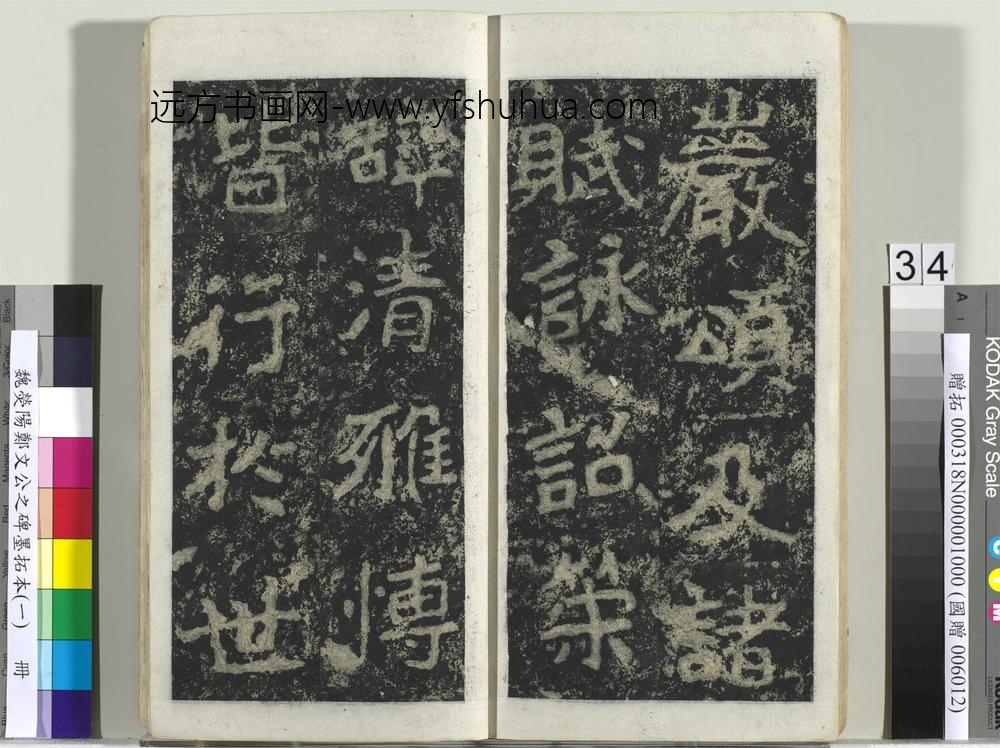 远方书画网-www.yfshuhua.com
巖頌及諸
賦詠詔策
辭清雅博
皆行於世
34
魏滎陽鄭文公之碑墨拓本(一) 冊
贈拓 000318N000001000 (國贈 006012)
KODAK Gray Scale
A 1
C
Y
M
Kodak
LICENSED PRODUCT
Black
3/Color
White
Magenta
Red
Yellow
Green
Cyan
Blue